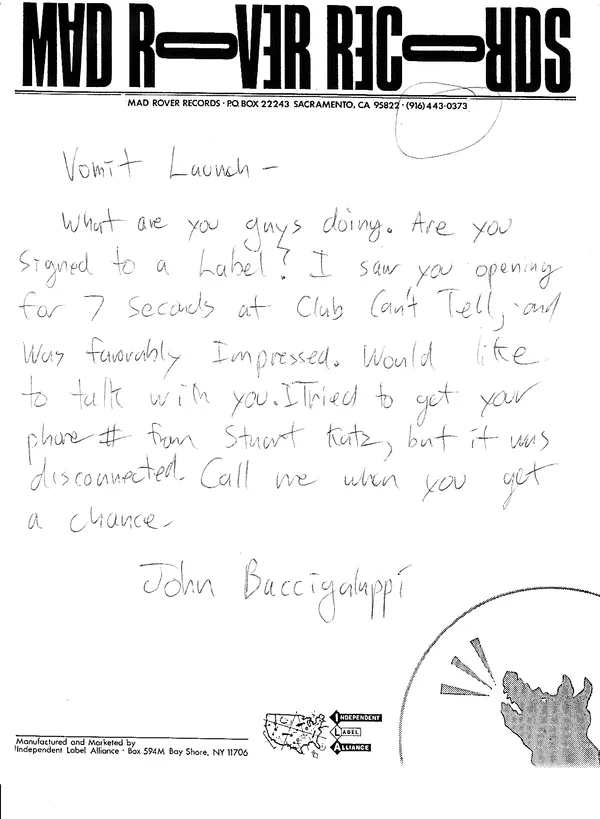 MAD ROVER RECORDS
MAD ROVER RECORDS · P.O. BOX 22243 SACRAMENTO, CA 95822 · (916) 443-0373
Vomit Launch -
What are you guys doing. Are you
signed to a Label? I saw you opening
for 7 Seconds at Club Can't Tell, and
was favorably Impressed. Would like
to talk with you. I Tried to get your
phone # from Stuart Katz, but it was
disconnected. Call me when you get
a chance.
John Baccigaluppi
INDEPENDENT
LABEL
ALLIANCE
Manufactured and Marketed by
Independent Label Alliance · Box 594M Bay Shore, NY 11706